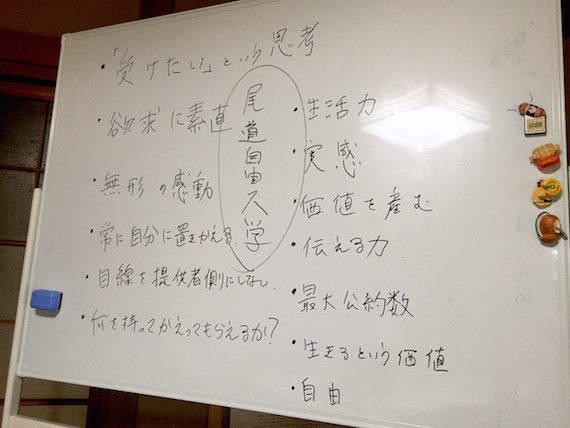 ・「受けたい」という思考
・欲求に素直
・無形の感動
・常に自分に置きかえる。
・目線を提供者側にしない。
・何を持ってかえってもらえるか?
尾道自由大学
・生活力
・実感
・価値を産む
・伝える力
・最大公約数
・生きるという価値
・自由